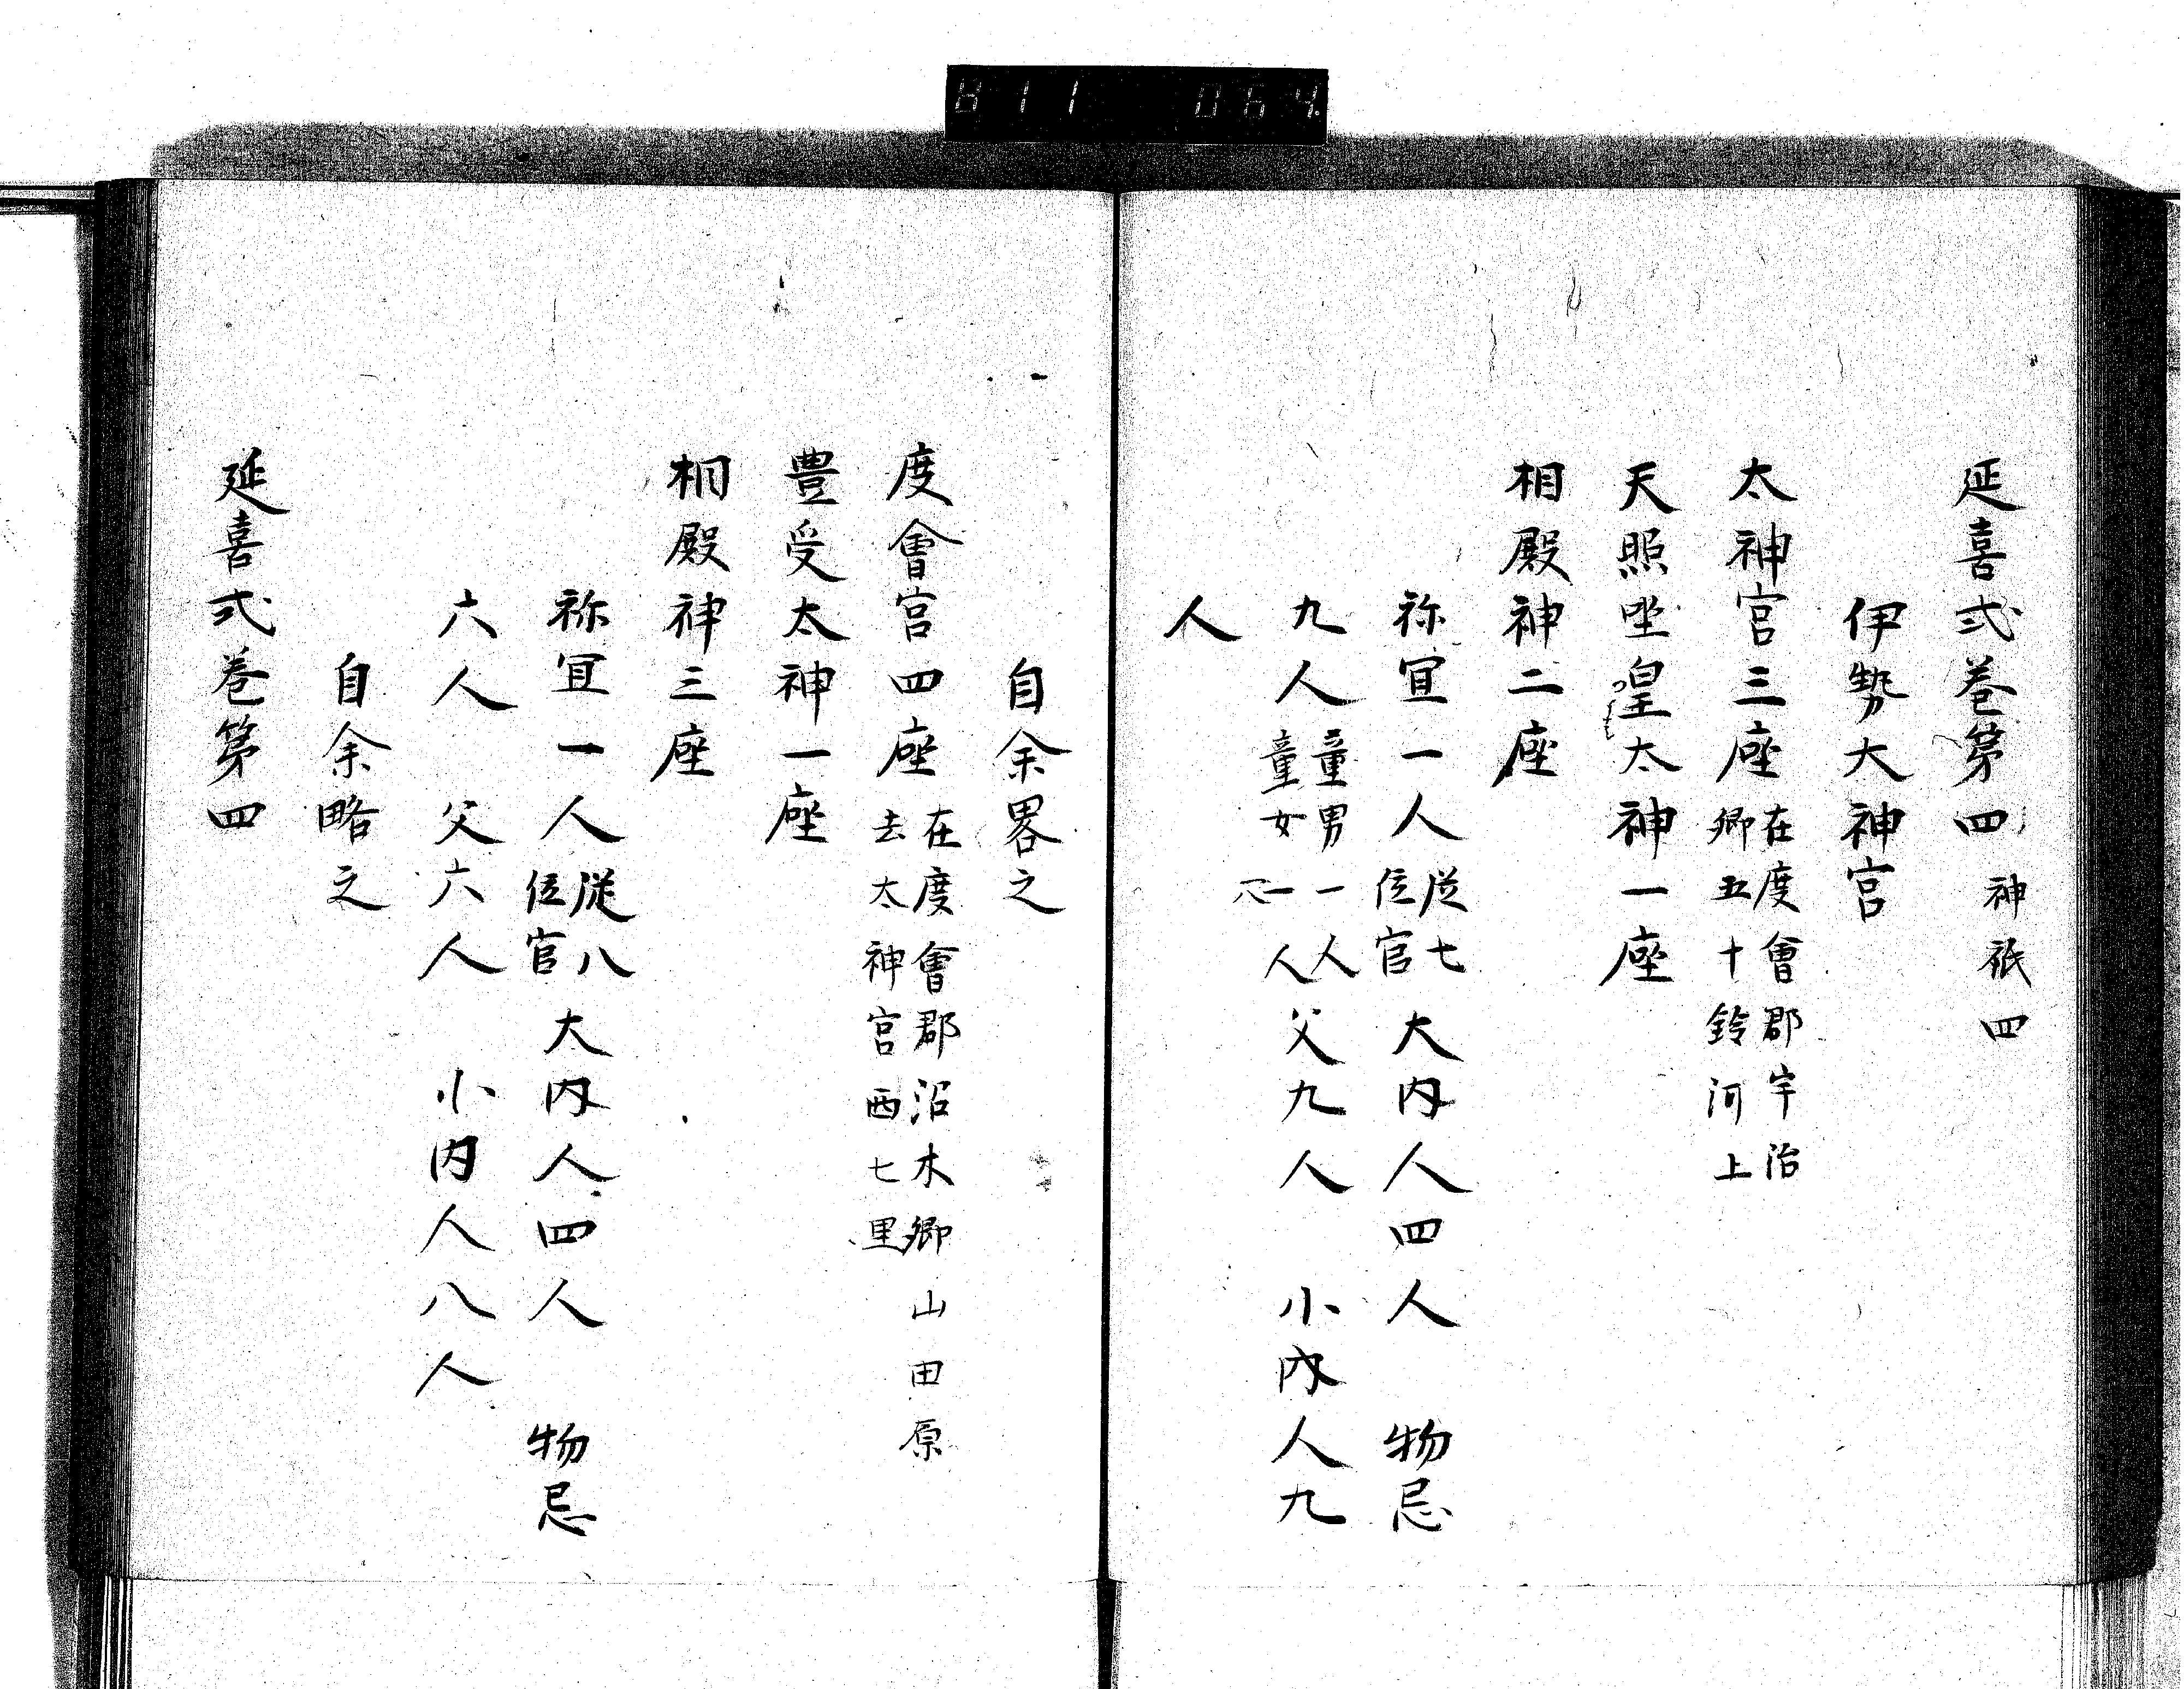 811 064.
延喜式巻第四 神祇四
伊勢大神宮
太神宮三座 在度會郡宇治
郷五十鈴河上
天照坐皇太神一座
相殿神二座
祢冝一人 従七
位官 大内人四人 物忌
九人 童男一人
童女一人 父九人 小内人九
人
自余畧之
度會宮四座 在度會郡沼木郷山田原
去太神宮西七里
豊受太神一座
相殿神三座
祢冝一人 従八
位官 大内人四人 物忌
六人 父六人 小内人八人
自余略之
延喜式巻第四